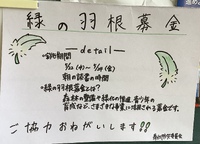 緑の羽根募金
―detail―
・募金期間
5/22(月)〜5/26(金)
朝の読書の時間
・緑の羽根募金とは?
森林の整備や緑化の推進、青少年の
育成など、さまざまな事業に活用される募金です。
ご協力おねがいします!!